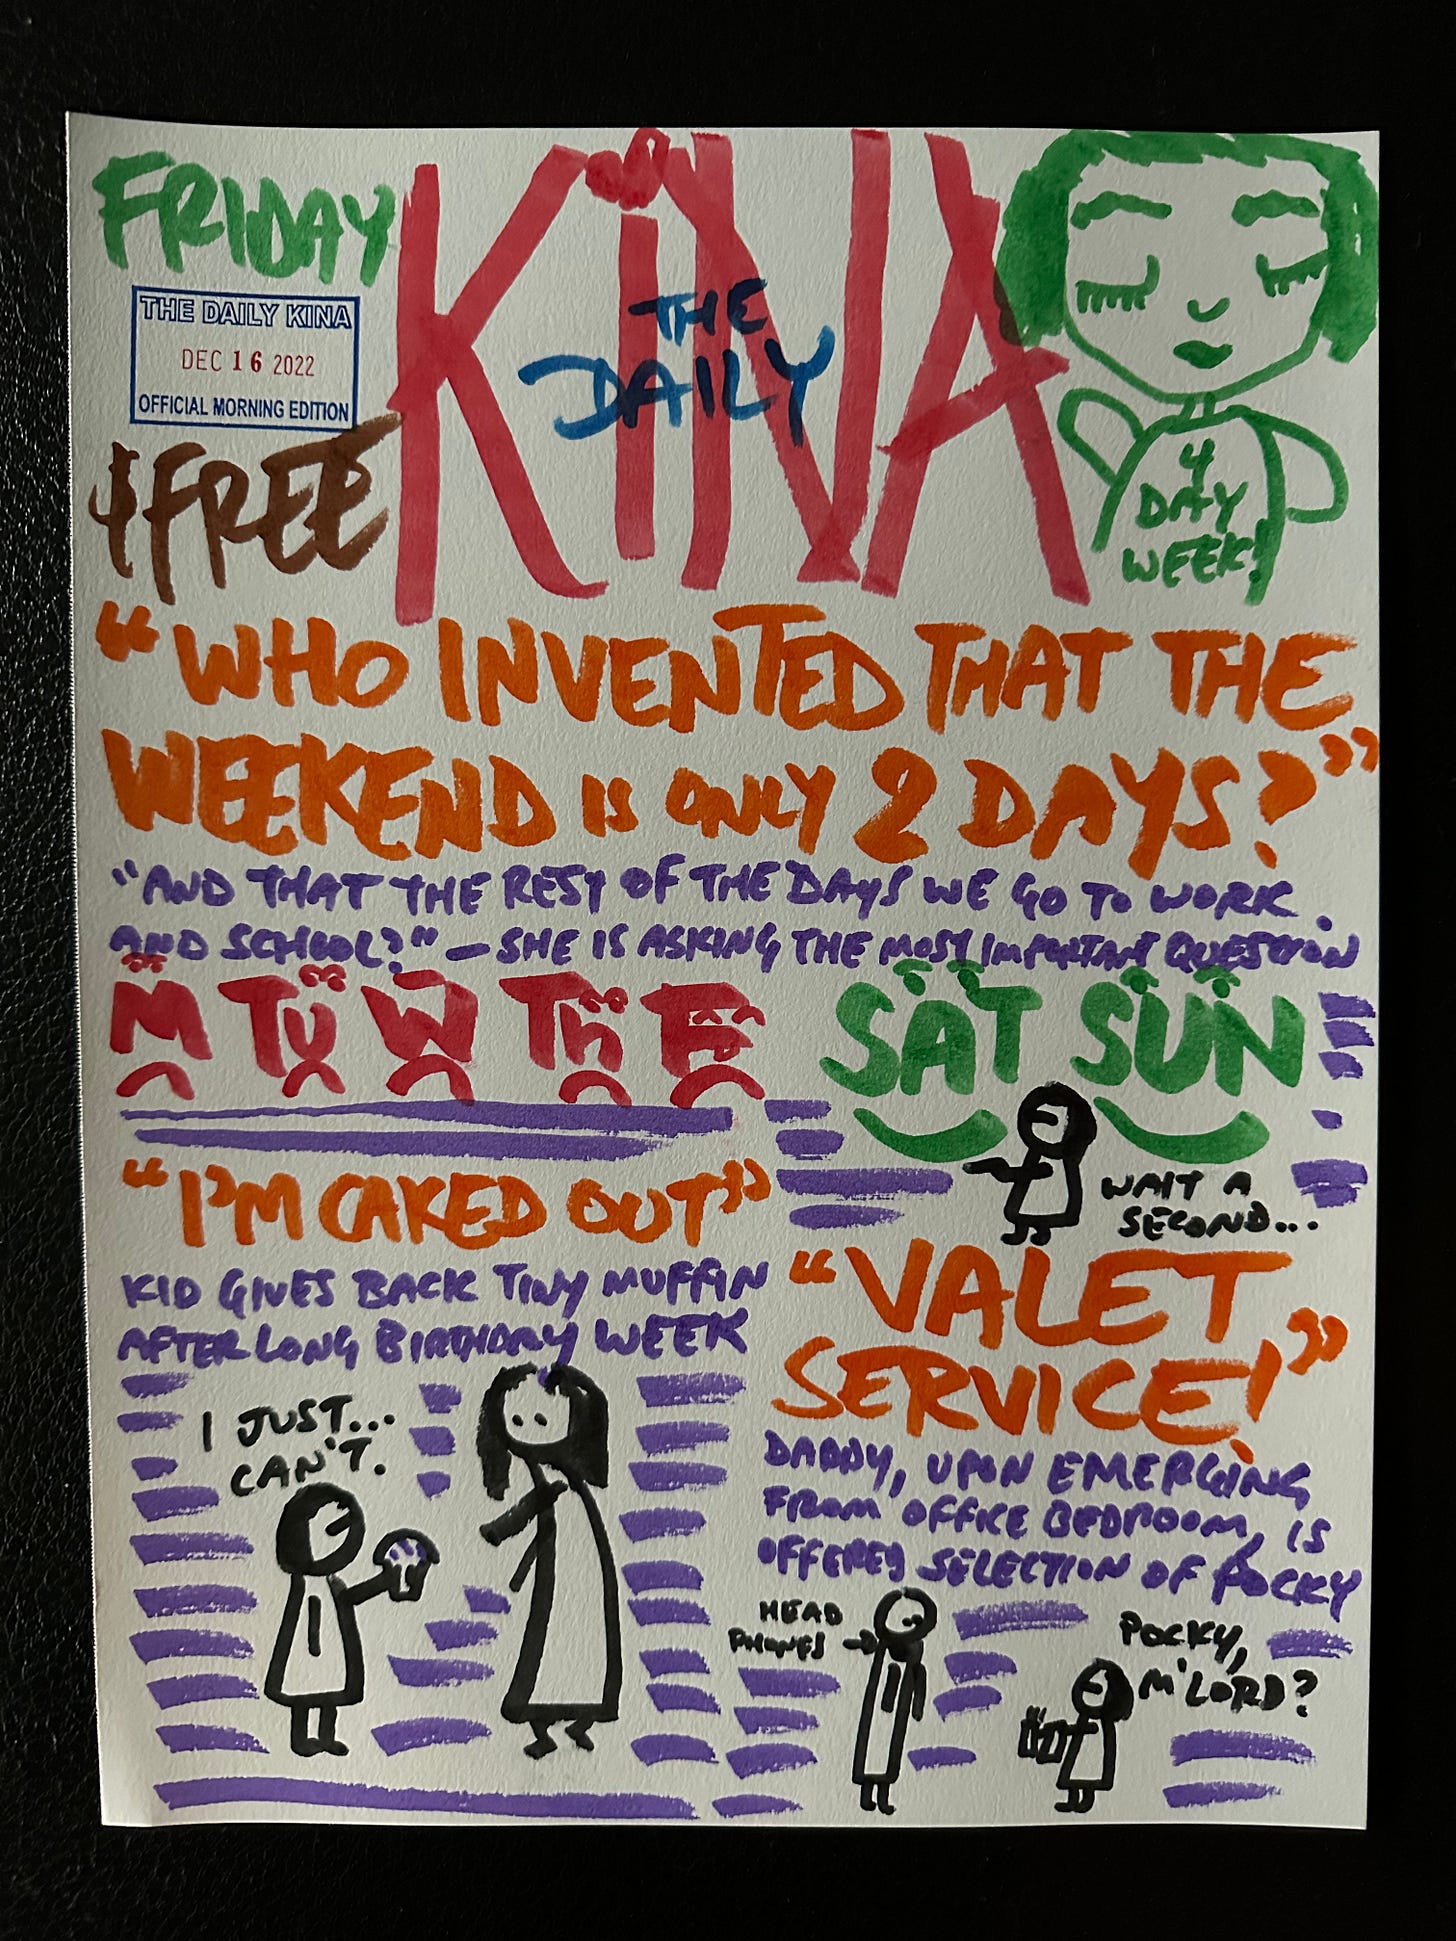 FRIDAY
THE DAILY KINA
DEC 16 2022
OFFICIAL MORNING EDITION
FREE
KiNA
THE
DAILY
4
DAY
WEEK!
“WHO INVENTED THAT THE
WEEKEND IS ONLY 2 DAYS?”
“AND THAT THE REST OF THE DAYS WE GO TO WORK
AND SCHOOL?” — SHE IS ASKING THE MOST IMPORTANT QUESTION
M TU W Th F SAT SUN
WAIT A
SECOND...
“I'M CAKED OUT”
KID GIVES BACK TINY MUFFIN
AFTER LONG BIRTHDAY WEEK
I JUST...
CAN'T.
“VALET
SERVICE!”
DADDY, UPON EMERGING
FROM OFFICE BEDROOM, IS
OFFERED SELECTION OF POCKY
HEAD
PHONES
POCKY,
M'LORD?